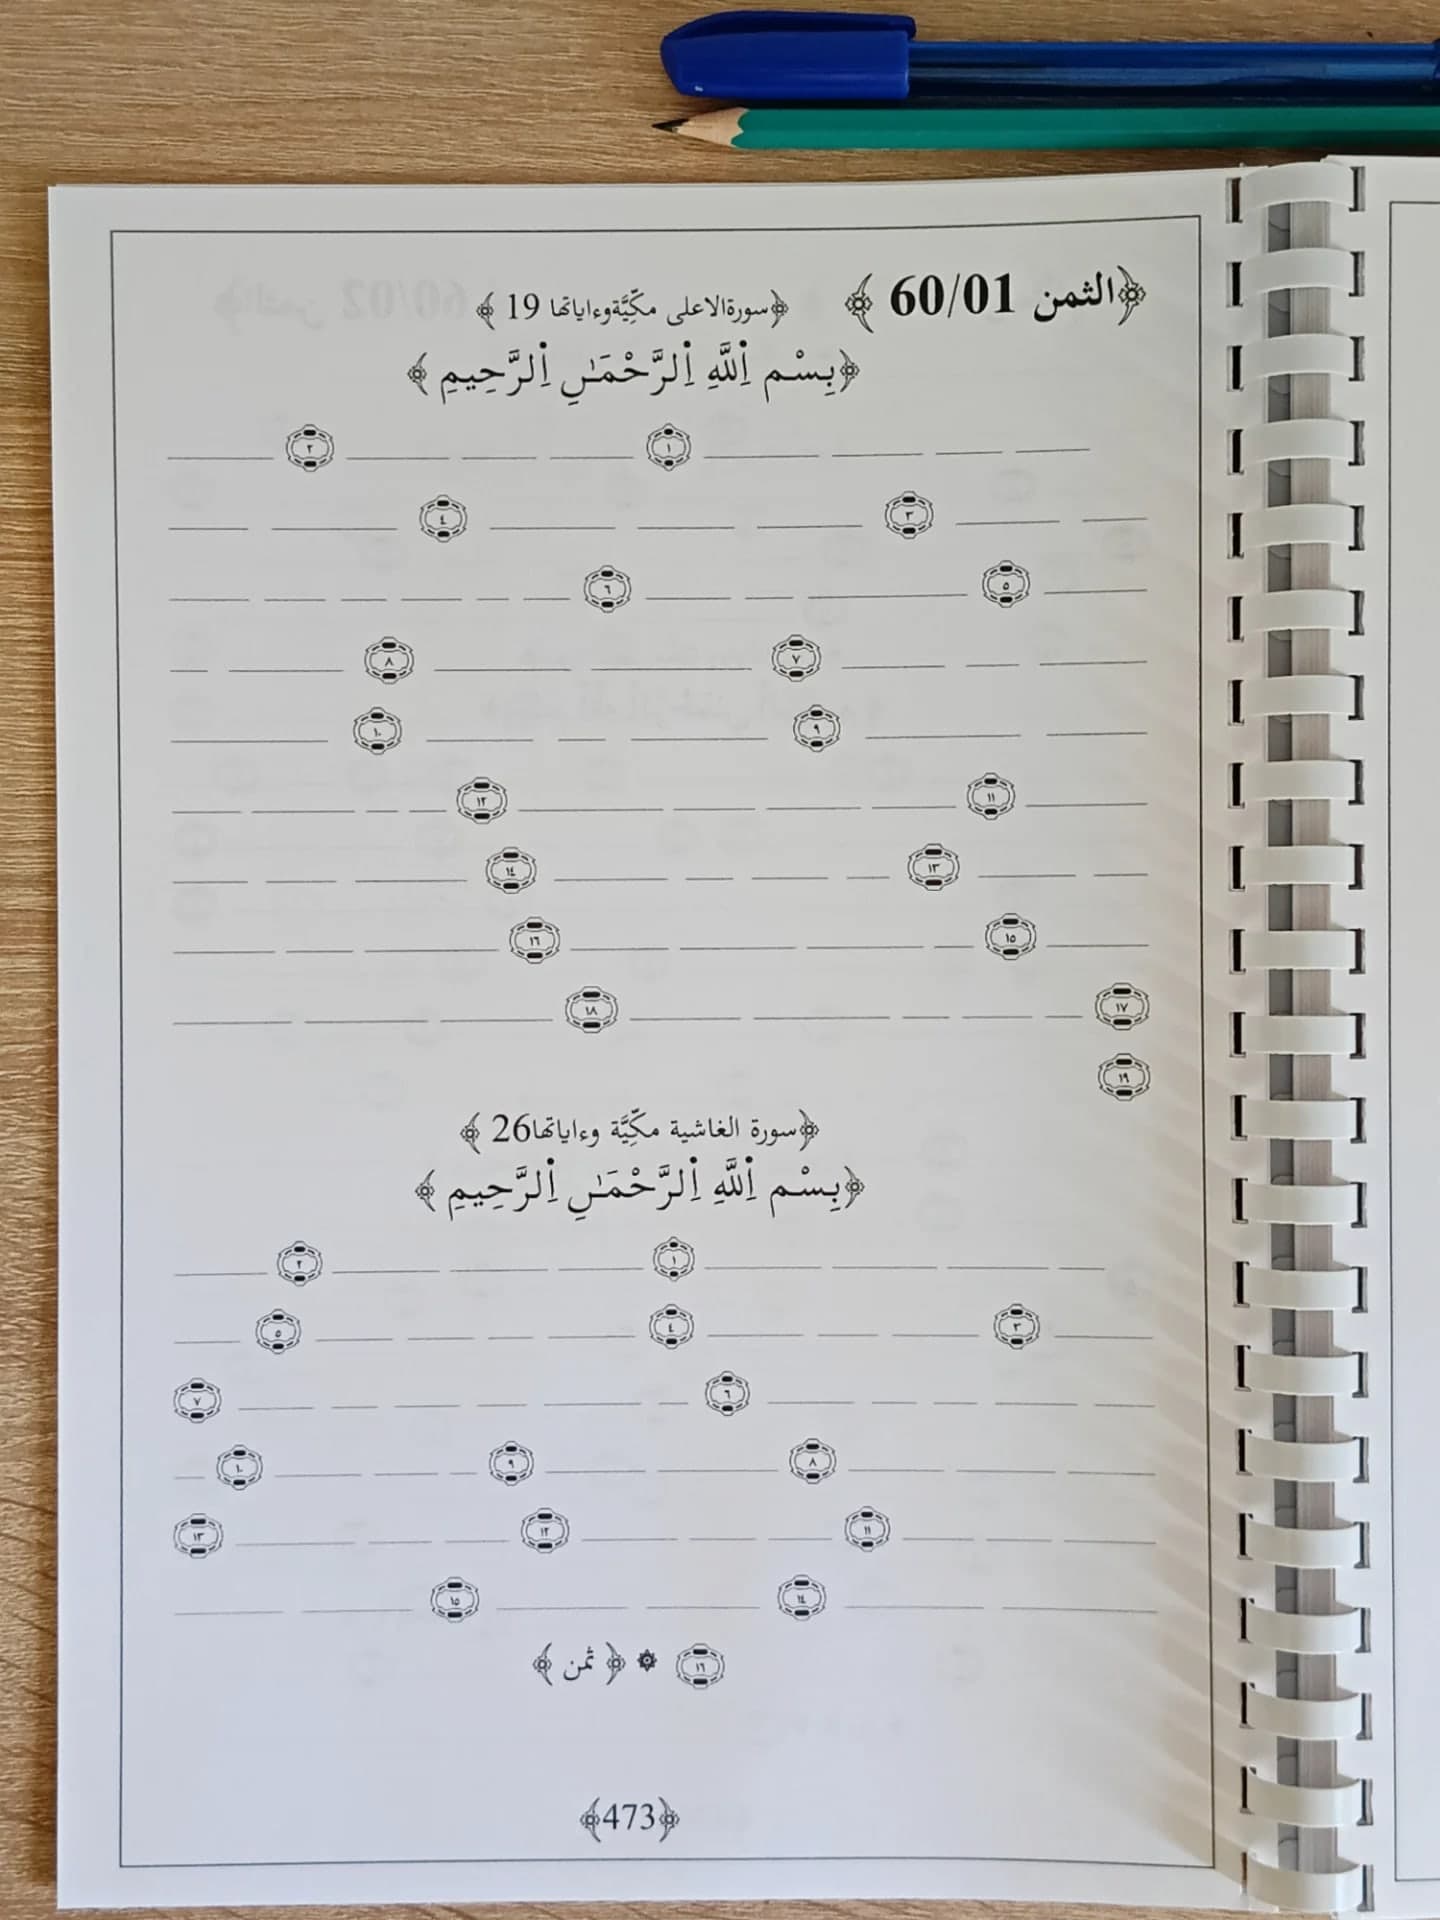 ﴿الثمن 60/01﴾ ﴿سورةالاعلى مكِّيَّةوءاياتها 19﴾
﴿بِسْمِ اِ۬للَّهِ اِ۬لرَّحْمَٰنِ اِ۬لرَّحِيمِ﴾
١ ٢
٣ ٤
٥ ٦
٧ ٨
٩ ١٠
١١ ١٢
١٣ ١٤
١٥ ١٦
١٧ ١٨
١٩
﴿سورة الغاشية مكِّيَّة وءاياتها26﴾
﴿بِسْمِ اِ۬للَّهِ اِ۬لرَّحْمَٰنِ اِ۬لرَّحِيمِ﴾
١ ٢
٣ ٤ ٥
٦ ٧
٨ ٩ ١٠
١١ ١٢ ١٣
١٤ ١٥
١٦ ۞ ﴿ثمن﴾
﴿473﴾